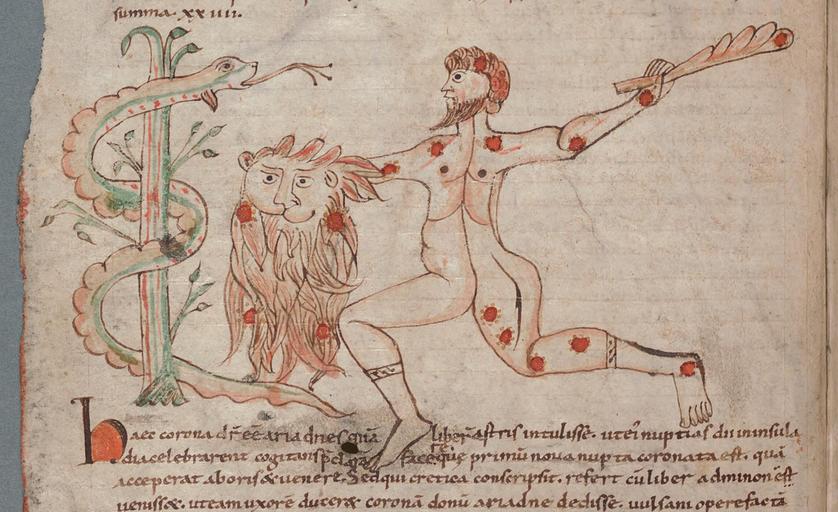 summa. xx iiii.
haec corona dr̄ eē ariadnes quā liber astris intulisse. ut eī nuptias dii in insula
dia celebrarent cogitans facere que primū nova nupta coronata est. quā
acceperat aboris & venere. Sed qui cretica conscripsit. refert cū liber ad minon est
venisse. ut eam uxorē duceret coronā donū ariadne dedisse. vulcani opere factā